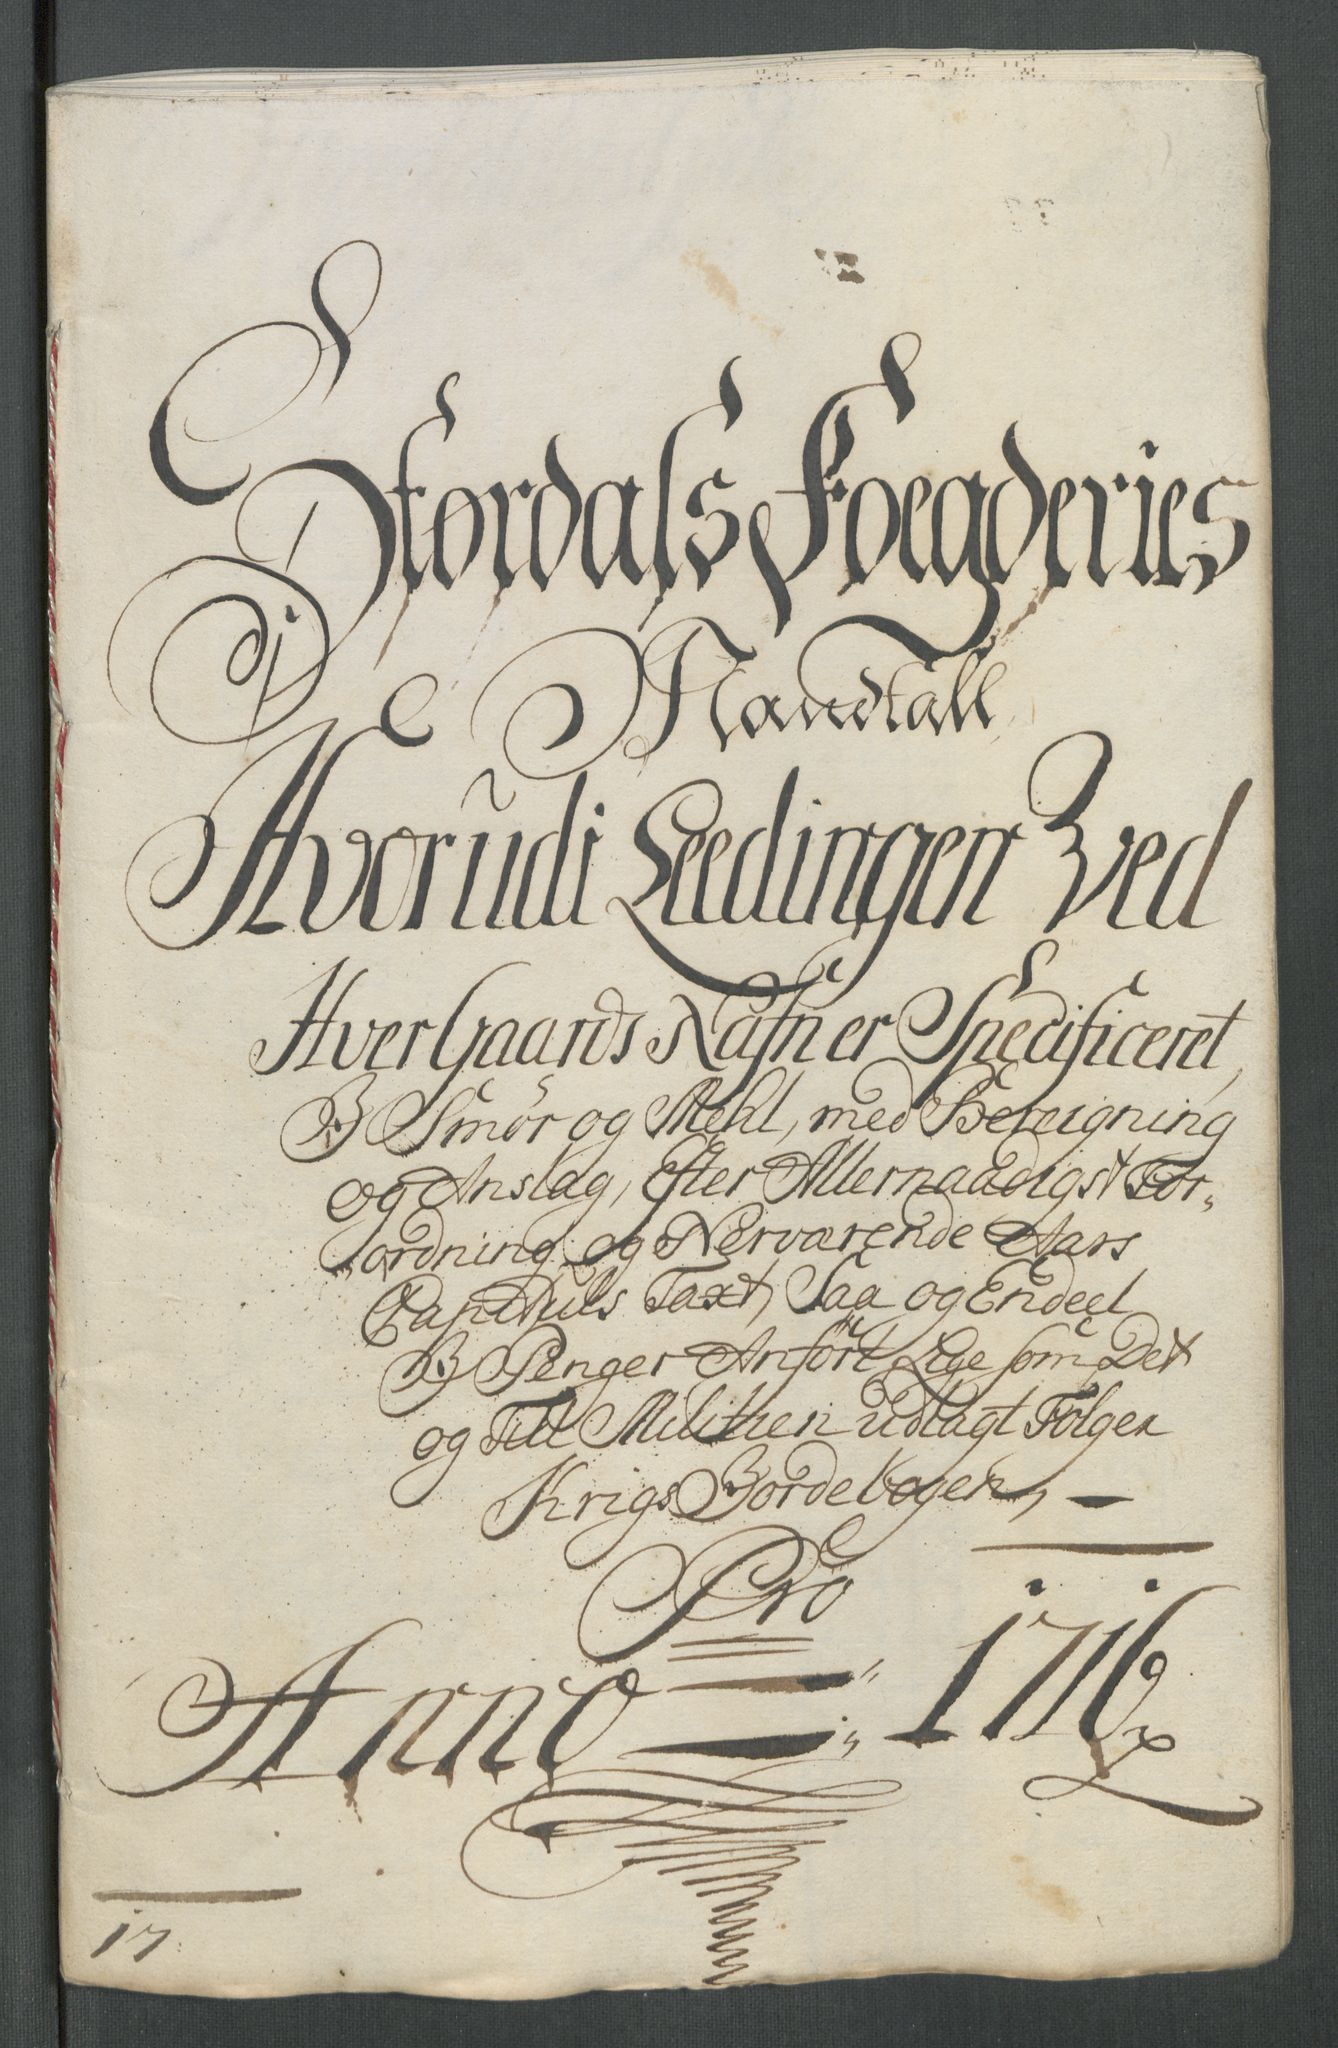 Størdals Foegderies
Mandtall
Hvorudi Leedingen Wed
Hver Gaards Nafn er Specificeret,
J Smør og Mehl, med Bereigning
og Anslag, Efter Allernaadigst For„
„ordning og Nerværende Aars
Capituls Taxt, Saa og Endeel
J Penger Anført, Lige som Det
og Till Militien udlagt Følger
Krigs Jordebogen, —
Pro
Anno 1716
17